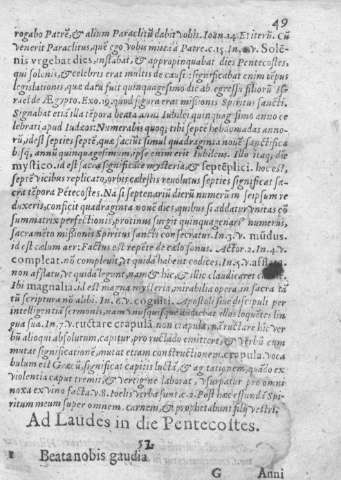 49
rogabo Patrē, & alium Paraclitū dabit vobis. Ioan 14. Et iterū. Cū
venerit Paraclitus, quē ego vobis mittā à Patre. c. 15. In. v. Solē-
nis vrgebat dies. instabat, & appropinquabat dies Pentecostes,
qui solenis, & celebris erat multis de causis: significabat enim tēpus
legislationis, quæ data fuit quinquagesimo die ab egressu filiorū Is-
rael de Ægypto. Exo. 19. quod figura erat missionis Spiritus sancti.
Signabat etiā illa tēpora beata anni Iubilei quinquagesimo anno ce
lebrati apud Iudæos: Numerabis quoq; tibi septē hebdomadas anno-
rū, id est septies septē, quæ faciūt simul quadraginta nouē sanctifica
b. sq, annū quinquagesimum, ipse enim erit Iubileus. Illo itaq; die
mystico. id est sacrā significāte mysteria, & septēplici. hoc est,
septē vicibus replicato, orbis cælestis reuolutus septies significat sa-
cra tēpora Pētecostes. Nā si septenariū dierū numerū in seipsum re
duxeris, conficit quadraginta nouē dies, quibus si addatur vnitas cū
summatrix perfectionis, protinus surgit quinquagenari° numerus,
Sacramēto missionis Spiritus sancti consecratus. In. 3. v. mūdus.
id est cælum aer: Factus est repēte de cælo sonus. Actor. 2. In. 4. v.
compleat. nō complevit, vt quidā habent codices. In. 5. v. afflatu.
non afflatu, vt quidā legunt, nam & hic, & illic claudicaret
Ibi magnalia. id est magna mysteria, mirabilia opera in sacra tā
tū scriptura nō alibi. In. 6. v. cogniti. Apostoli siue discipuli per
intelligentiā sermonis, nam vnusquisque audiebat ellos loquētes lin
gua sua. In. 7. v. ructare crapulā. non crapula, nā ructare hîc ver
bū alioqui absolutum, capitur, pro ructādo emittere, & Verbū cum
mutat significationē, mutat etiam constructionem. crapula. voca
bulum est Græcū, significat capitis luctā, & agitationem, quādo ex
violentia caput tremit, & vertigine laborat, vsurpatur pro omni
noxa ex vino facta. v. 8. toelis verba sunt c. 2. Post hæc effundā Spi-
ritum meum super omnem carnem, & prophetabunt filij vestri.
Ad Laudes in die Pentecostes.
52.
1 Beata nobis gaudia.
G Anni